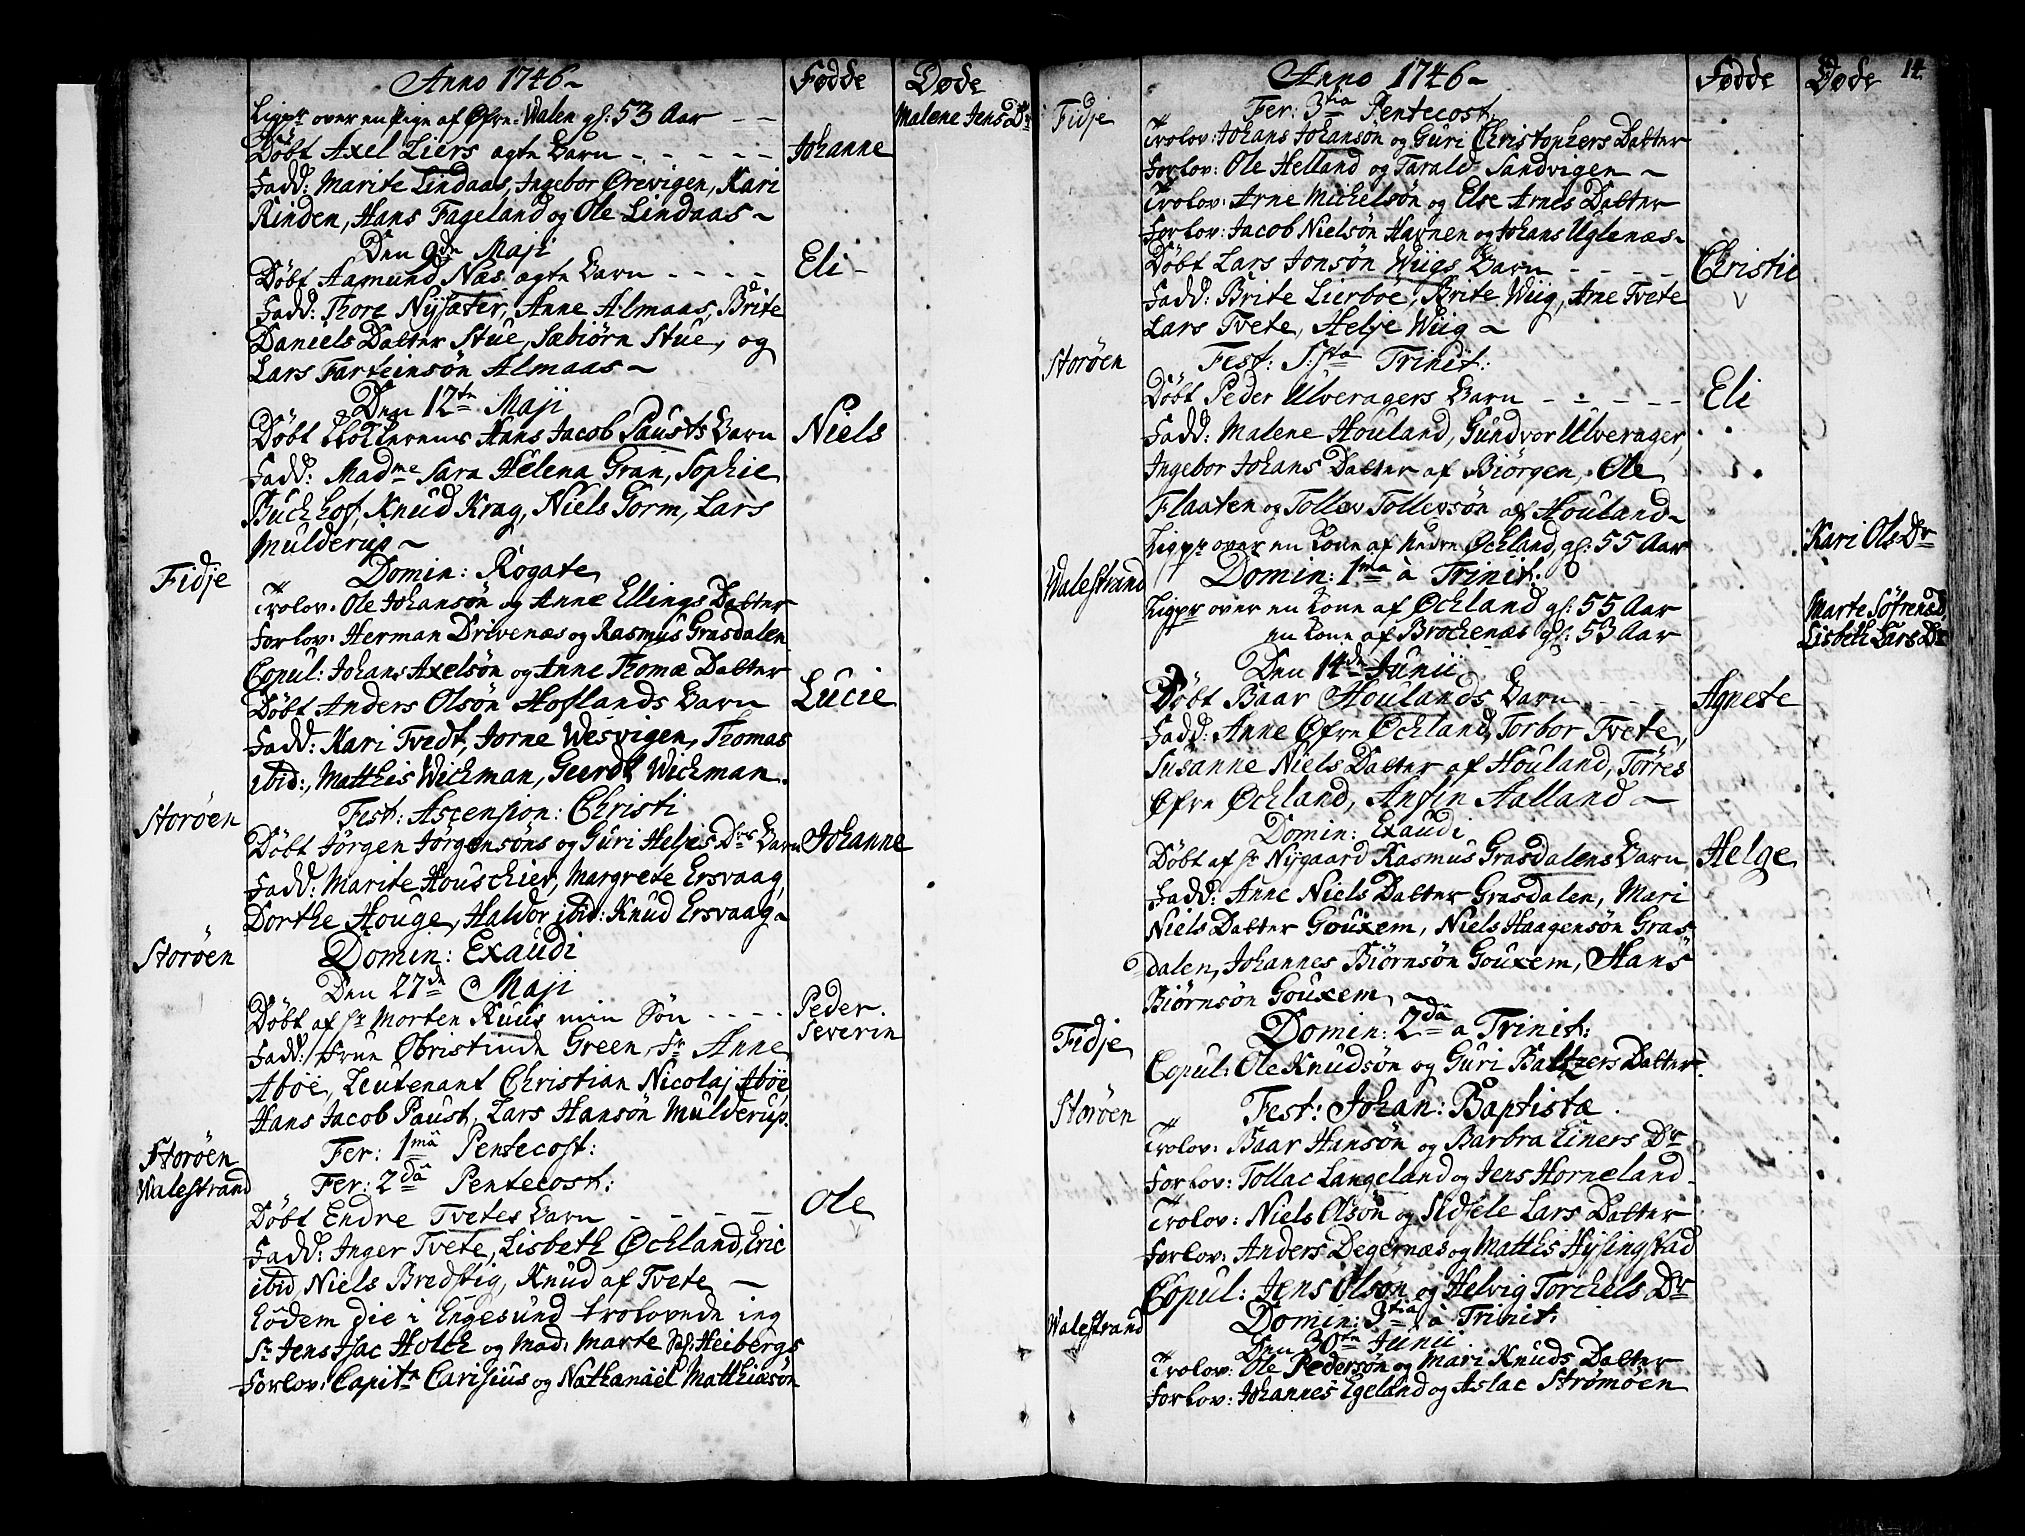 Anno 1746 ~ Fødde Døde
Ligpr over en Pige af Øfre: Walen gl: 53 Aar - - Malene Jens Dr
Døbt Axel Liers ægte Barn - - - - - Johanne
Fadd: Marite Lindaas, Ingebor Ørevigen, Kari
Rinden, Hans Fageland og Ole Lindaas ~
Den 9de Maji
Døbt Aamund Næs ægte Barn - - - - Eli -
Fadd: Thore Nysæter, Anne Almaas, Brite
Daniels Datter Stue, Sæbiørn Stue, og
Lars Farteinsön Almaas ~
Den 12te Maji
Döbt Hans Jacob Pausts Barn Niels
Fadd: Madme Sara Helena Gran, Sophie
Buchhof, Knud Krag, Niels Gorm, Lars
Mulderup ~
Fidje Domin: Rogate
Trolov: Ole Johansön og Anne Ellings Datter
Forlov: Herman Drivenæs og Rasmus Grasdalen
Copul: Johans Axelsön og Anne Thomæ Datter
Döbt Anders Olsön Hoflands Barn Lucie
Fadd: Kari Tvedt, Jorne Wesvigen, Thomas
ibid:, Matthis Wichman, Geerdt Wichman.
Storöen Fest: Ascension: Christi
Döbt Jörgen Jörgensöns og Guri Heljes Drs Barn Johanne
Fadd: Marite Houschier, Margrete Ersvaag,
Dorthe Houge, Haldor ibid: Knud Ersvaag ~
Storöen Domin: Exaudi
Den 27de Maji
Döbt af Hr Morten Ruus min Sön - - - - Peder Severin
Fadd: Frue Obristinde Green, Fr Anne
Aböe, Leutenant Christian Nicolaj Aböe,
Hans Jacob Paust, Lars Hansön Mulderup.
Storöen Fer: 1ma Pentecost:
Walestrand Fer: 2da Pentecost:
Döbt Endre Tvetes Barn - - - - Ole
Fadd: Inger Tvete, Lisbeth Öchland, Eric
ibid, Niels Bredvig, Knud af Tvete ~
Eodem die i Engesund trolovede jeg
Sr Jens Isac Holck og Mad: Marte Sl: Heibergs
Forlov: Capitn Carisius og Nathanael Matthiæsön
Anno 1746 ~ Födde Döde 14
Fidje Fer: 3tia Pentecost:
Trolov: Johans Johansön og Guri Christophers Datter
Forlov: Ole Helland og Tarald Sandvigen ~
Trolov: Arne Michelsön og Else Arnes Datter
Forlov: Jacob Nielsön Hafnen og Johans Uglenæs ~
Döbt Lars Jonsön Wiigs Barn - - - - Christie
Fadd: Brite Lierboe, Brite Wiig, Arne Tvete
Lars Tvete, Helje Wiig ~
Storöen Fest: S:sta Trinit:
Döbt Peder Ulveragers Barn - - - - - Eli
Fadd: Malene Houland, Gundvor Ulverager,
Ingebor Johans Datter af Biörgen, Ole
Flaaten og Tollev Tollevsön af Houland ~
Ligpr over en Kone af Nedre Öchland, gl: 55 Aar Kari Ols Dr
Walestrand Domin: 1ma à Trinit:
Ligpr over en Kone af Öchland gl: 55 Aar Marte Söfrensd
en Kone af Brochenæs gl: 53 Aar Lisbeth Lars Dr
Den 14de Junii
Döbt Baar Houlands Barn - - - - Agnete
Fadd: Anne Öfre Öchland, Torbor Tvete,
Susanne Niels Datter af Houland, Törres
Öfre Öchland, Anfin Aalland ~
Domin: Exaudi
Döbt af Hr Nygaard Rasmus Grasdalens Barn Helge
Fadd: Anne Niels Datter Grasdalen, Mari
Niels Datter Gouxem, Niels Haagensön Gras
dalen, Johannes Biörnsön Gouxem, Hans
Biörnsön Gouxem ~
Fidje Domin: 2da a Trinit:
Copul: Ole Knudsön og Guri Baltzers Datter.
Storöen Fest: Johan: Baptistæ.
Trolov: Baar Hansön og Barbra Einers Dr
Forlov: Tollac Langeland og Jens Horneland
Trolov: Niels Olsön og Sidsele Lars Datter
Forlov: Anders Degernæs og Matthis Hysingstad
Copul: Jens Olsön og Helvig Torchels Dr
Walestrand Domin: 3tia à Trinit:
Den 30te Junii
Trolov: Ole Pedersön og Mari Knuds Datter
Forlov: Johannes Egeland og Aslac Strömöen